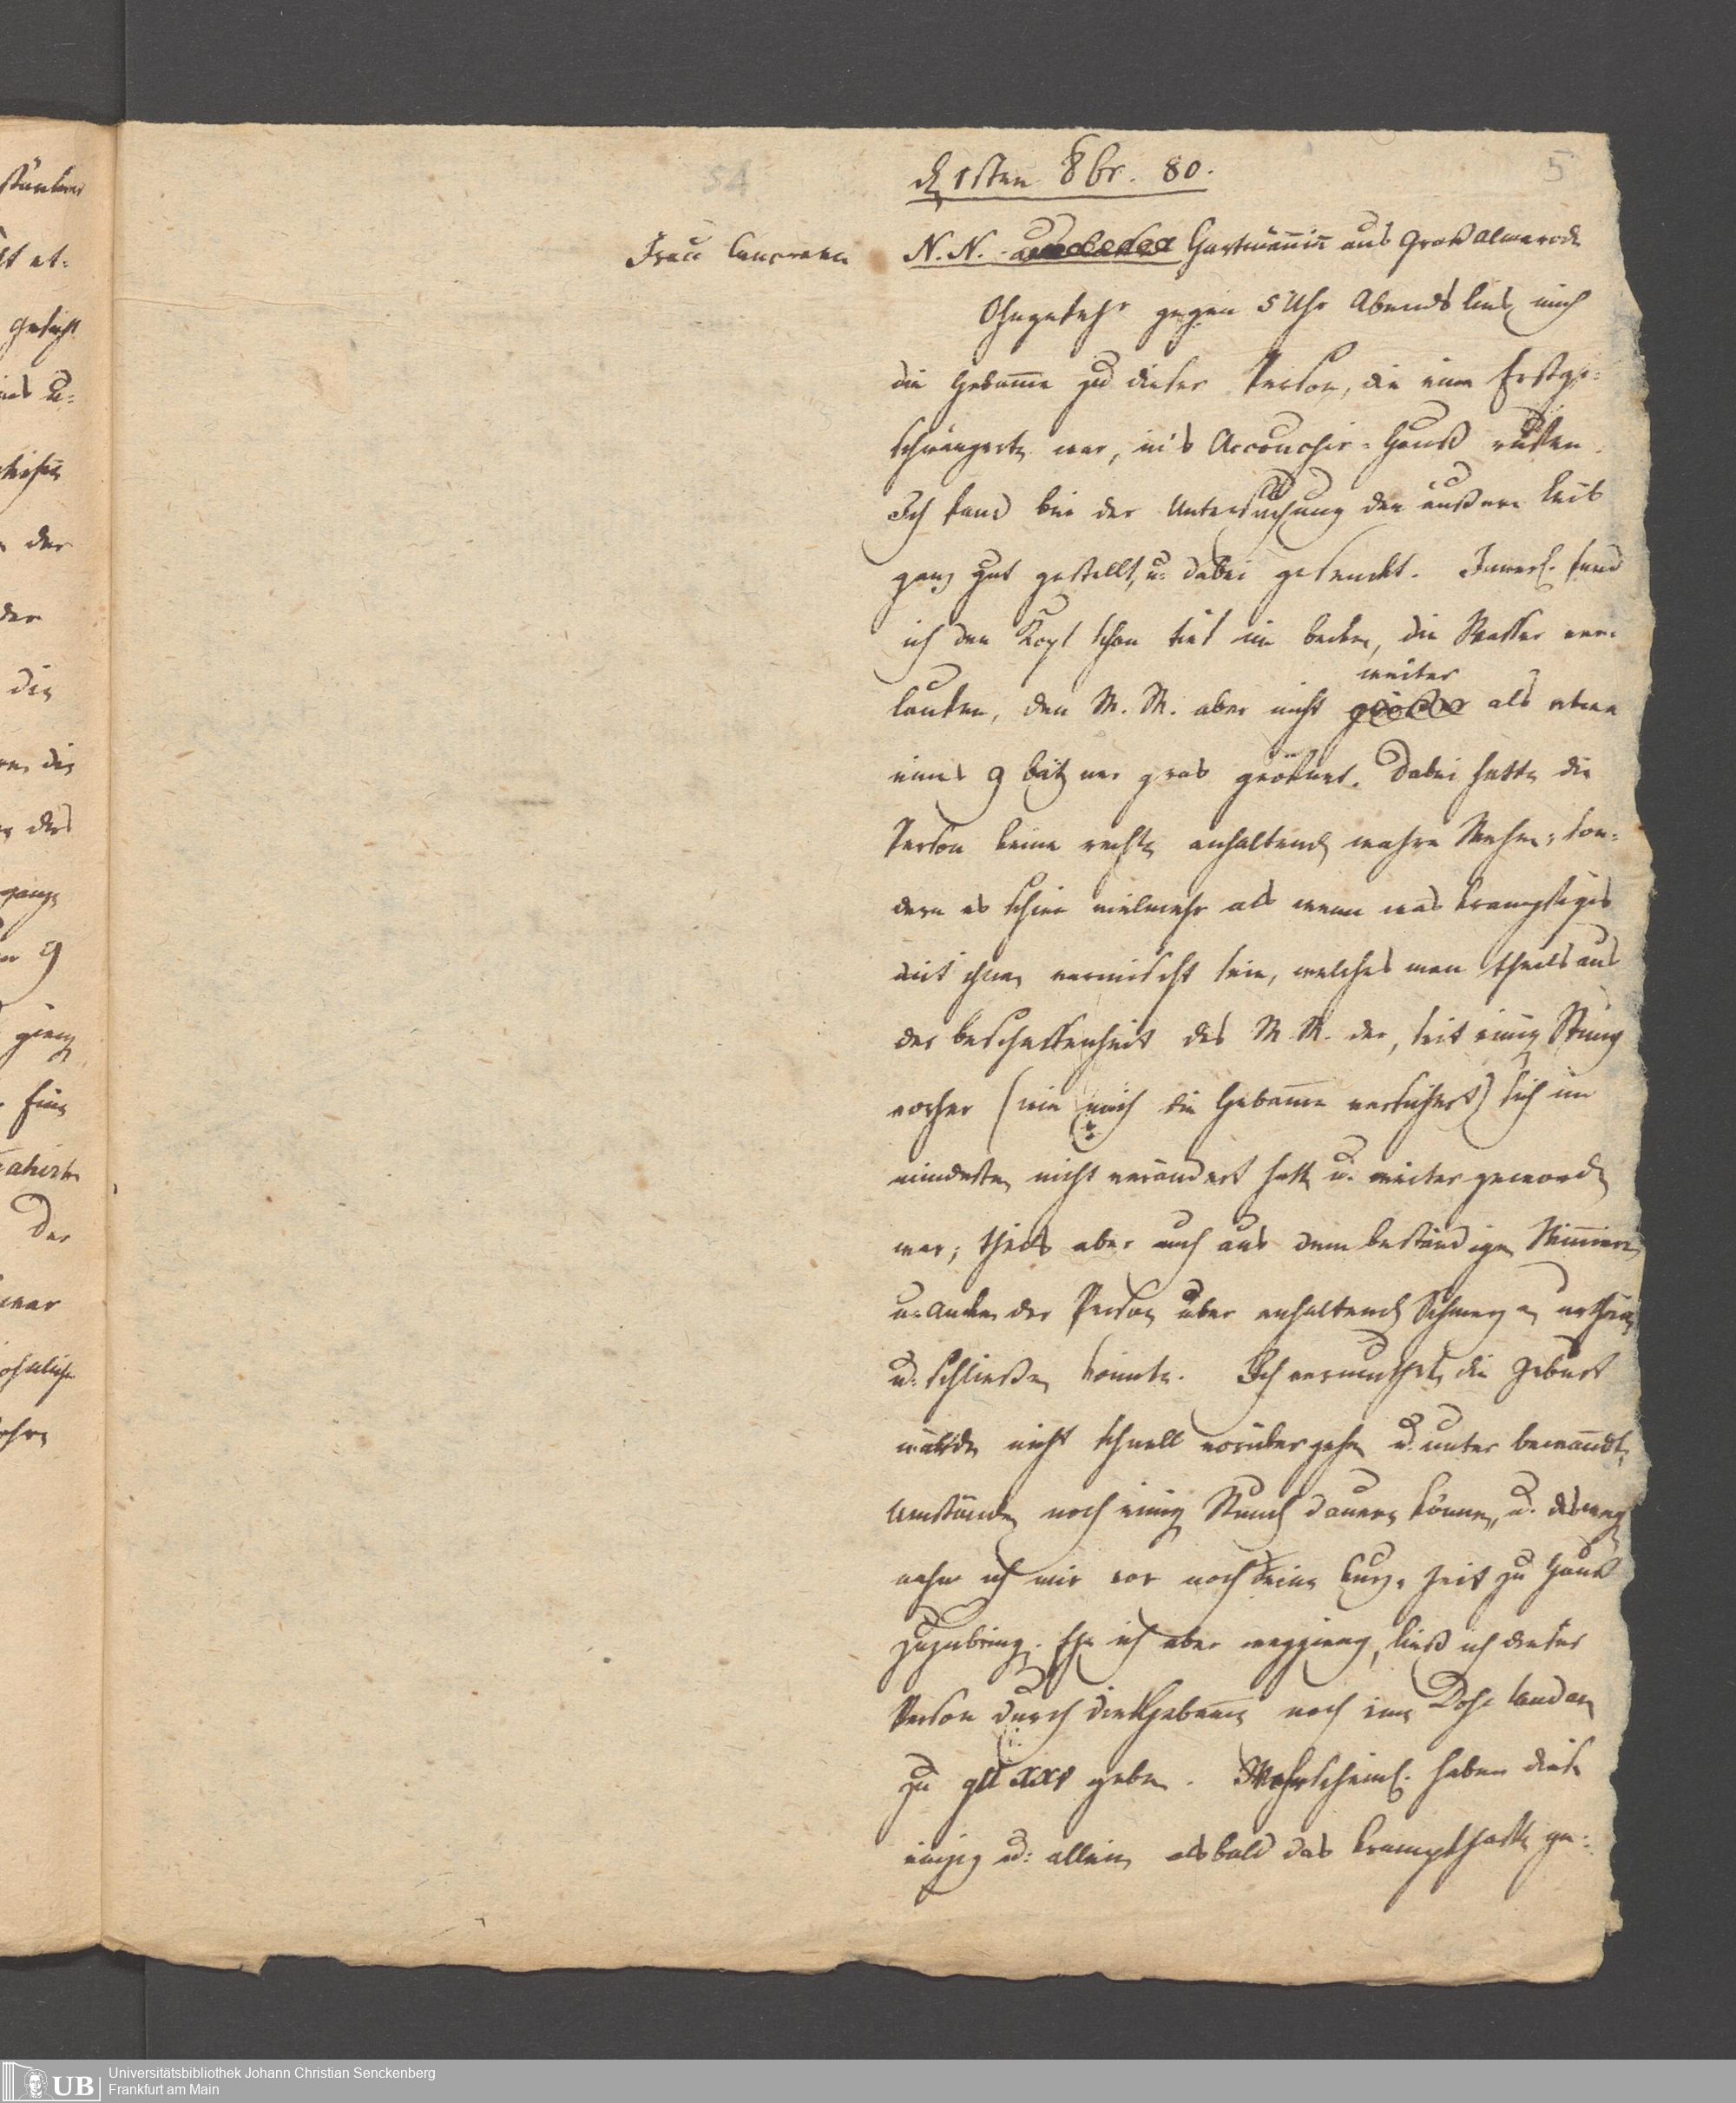 54
5
d 1sten 8br. 80.
Frau
N. N. Hartmännin aus Groß Almerode
Ohngefehr gegen 5 Uhr Abends lies mich
die Hebamme zu dieser Person, die eine Erstge-
schwängerte war, in's Accouchir-Hauß rufen.
Ich fand bei der Untersuchung den äußern Leib
ganz gut gestellt, u. dabei gesenckt. Innerl. fand
ich den Kopf schon tief im becken, die Wasser ver-
weiter
laufen, den M. M. aber nicht größer als etwa
eines 9 bätzner gros geöfnet. Dabei hatte die
Person keine rechte anhaltende wahre Wehen, son-
dern es schien vielmehr als wenn was krampfigtes
mit ihnen vermischt sein, welches man theils aus
der beschaffenheit des M. M. der, seit einig Stund
vorher (wie mich die Hebamme versichert) sich im
mindesten nicht verändert hatte u. weiter geworden
war; theils aber auch aus dem beständigen Wimmern
u. der Person über anhaltende Schmerzen
u. schließen konnte. Ich vermuthete, die Geburt
würde nicht schnell vorübergehen u. unter bewandten
Umständen noch einige Stunden dauern können, u. deswegen
nahm ich mir vor noch eine kurze Zeit zu Hauß
zuzubringen. Ehe ich aber weggieng, ließ ich dieser
Person durch die Hebamme noch eine Dose laudan
zu gtt xxv geben. Wahrscheinl. haben diese
einzig u: allein alsbald das krampfhafte ge-
ganz
der
der
die
war
UB
Universitätsbibliothek Johann Christian Senckenberg
Frankfurt am Main